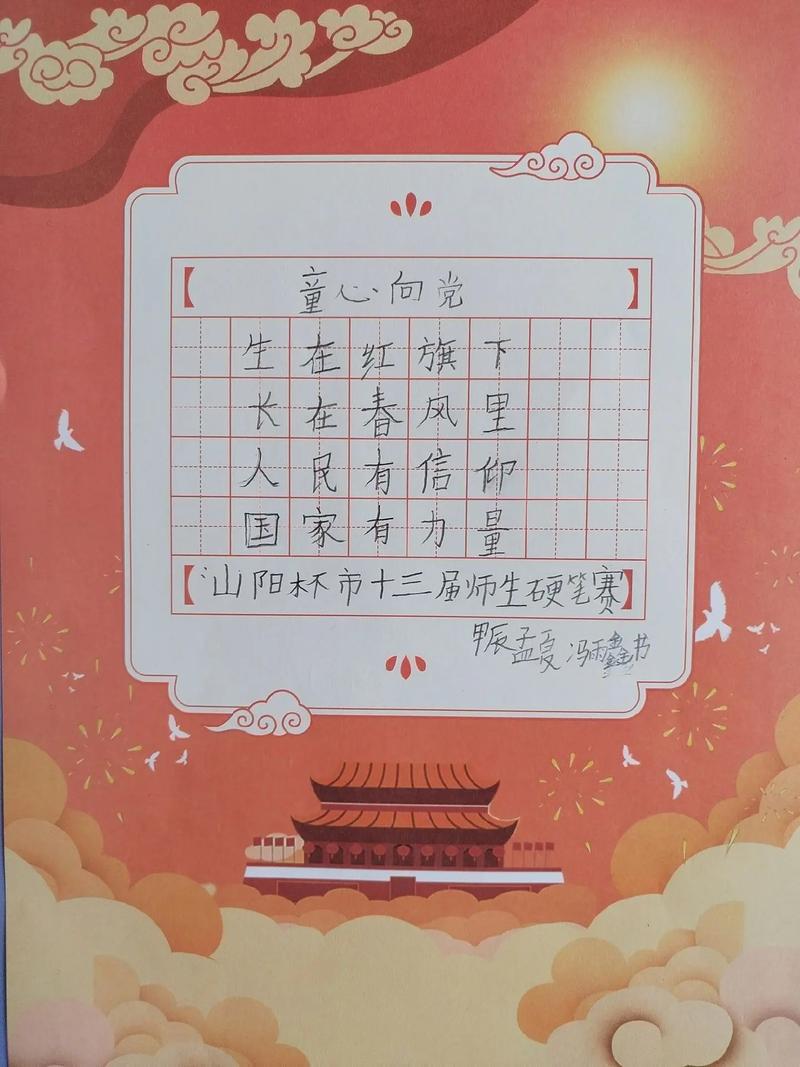 【童心向党】
生在红旗下
长在春风里
人民有信仰
国家有力量
【"山阳杯市十三届师生硬笔赛】
甲辰孟夏 冯雨鑫书